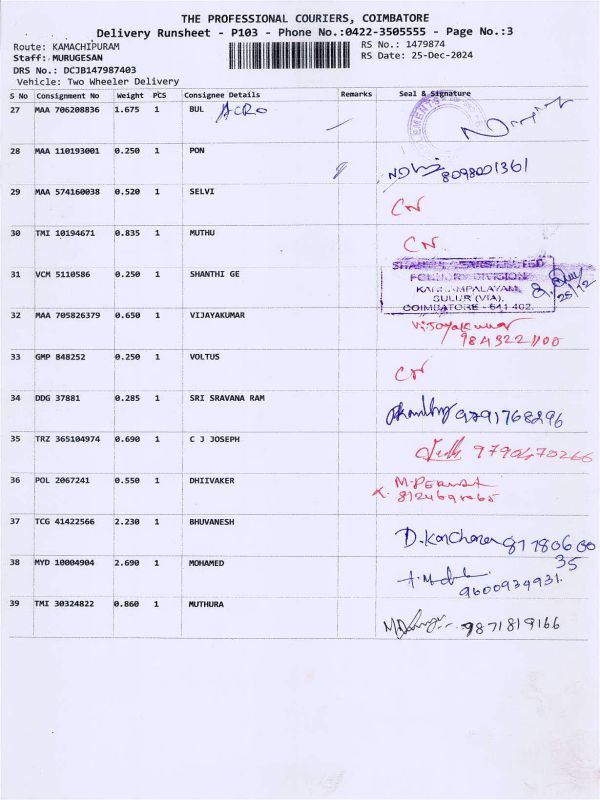 THE PROFESSIONAL COURIERS, COIMBATORE
Delivery Runsheet - P103 - Phone No.:0422-3505555 - Page No.:3
Route: KAMACHIPURAM RS No.: 1479874
Staff: MURUGESAN RS Date: 25-Dec-2024
DRS No.: DCJB147987403
Vehicle: Two Wheeler Delivery
S No Consignment No Weight PCS Consignee Details Remarks Seal & Signature
27 MAA 706208836 1.675 1 BUL ACRO
28 MAA 110193001 0.250 1 PON 8098001361
29 MAA 574160038 0.520 1 SELVI CN
30 TMI 10194671 0.835 1 MUTHU CN
31 VCM 5110586 0.250 1 SHANTHI GE
FOUNDRY DIVISION
SULUR (VIA),
COIMBATORE - 641 402.
25/12
32 MAA 705826379 0.650 1 VIJAYAKUMAR Vijayakumar
9843221100
33 GMP 848252 0.250 1 VOLTUS CN
34 DDG 37881 0.285 1 SRI SRAVANA RAM 9791768296
35 TRZ 365104974 0.690 1 C J JOSEPH 9790470266
36 POL 2067241 0.550 1 DHIIVAKER
37 TCG 41422566 2.230 1 BHUVANESH D. Kanchana 8778060035
38 MYD 10004904 2.690 1 MOHAMED
9600934931.
39 TMI 30324822 0.860 1 MUTHURA 9871819166